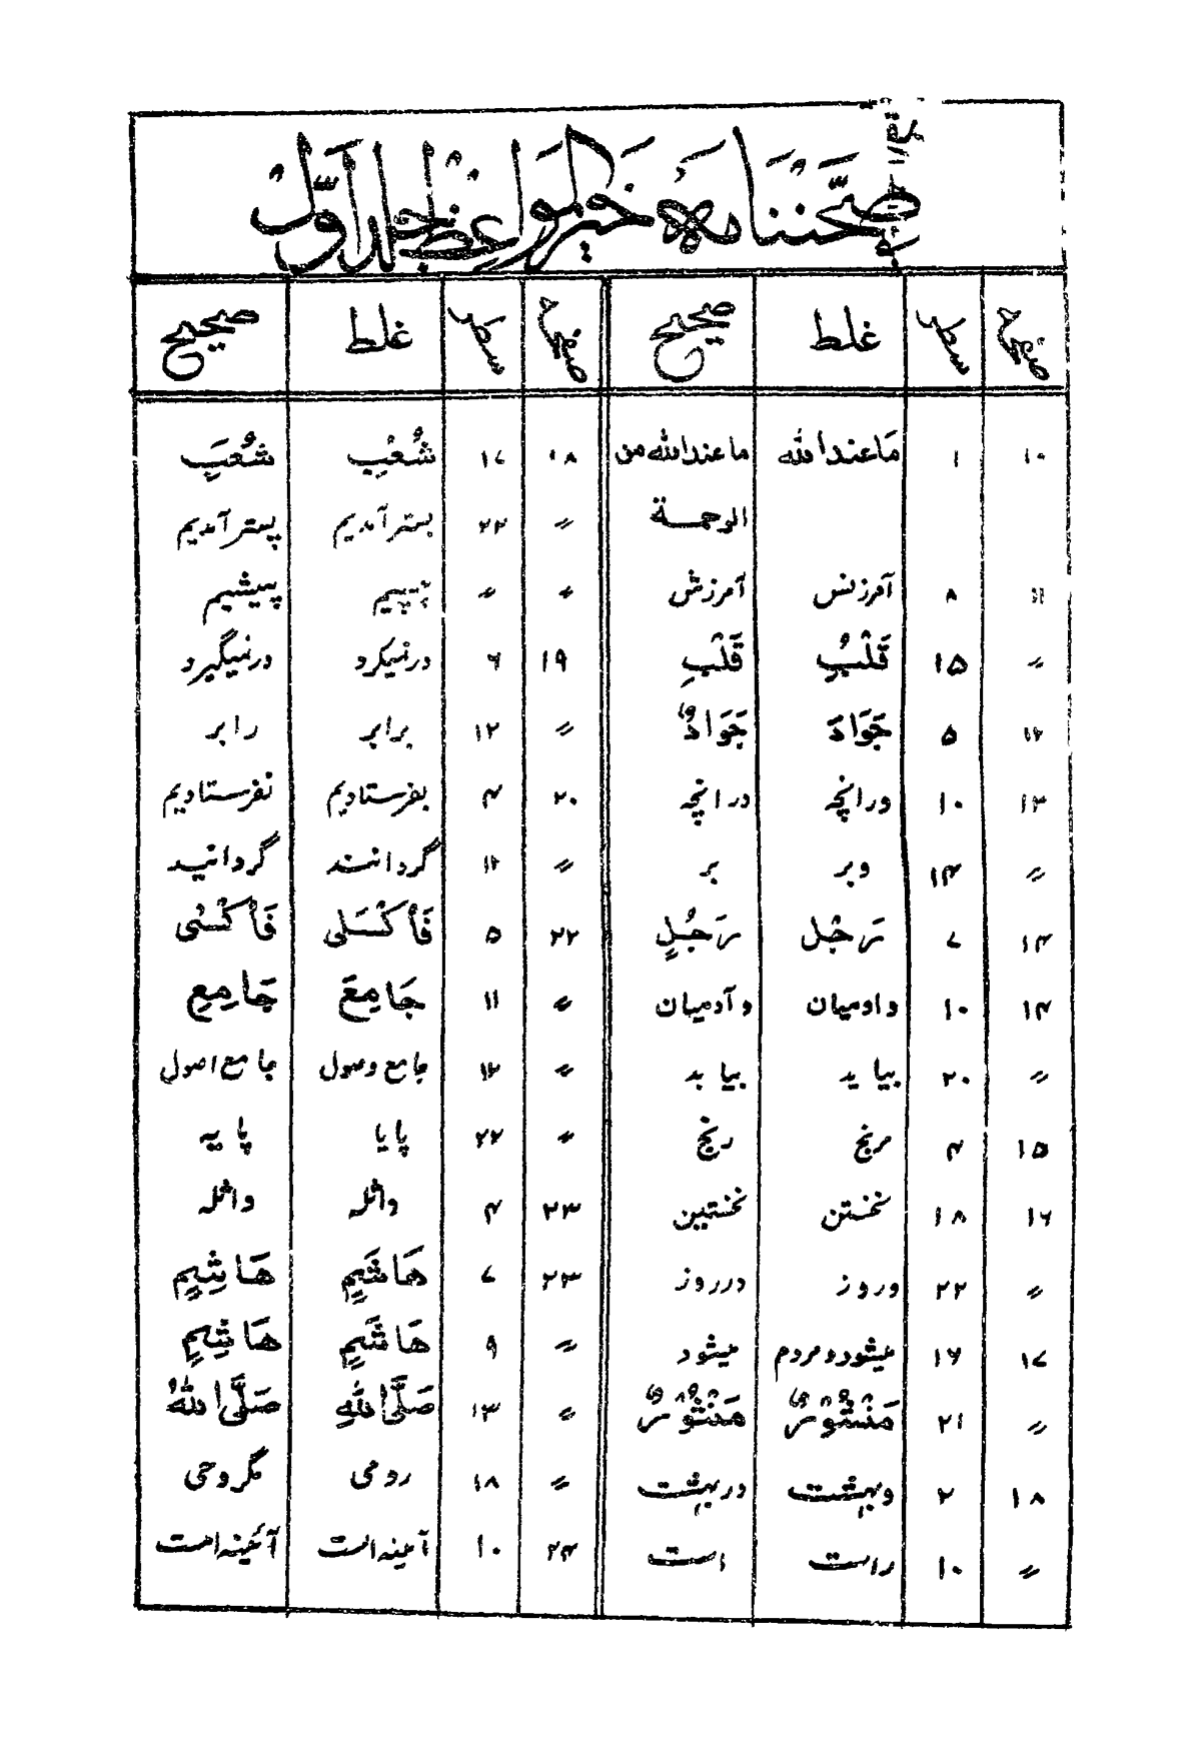 صحتنامه خیر المواعظ جلد اول
صفحه سطر غلط صحیح صفحه سطر غلط صحیح
۱۰ ۱ مَا عند الله ما عند الله من ۱۸ ۱۷ شُعْبِ شُعَبِ
الرحمة 〃 ۲۲ بسترآمدیم پسترآمدیم
۱۱ ۸ آمرزنس آمرزش 〃 〃 پیشیم
〃 ۱۵ قَلْبٌ قَلْبِ ۱۹ ۶ درنمیکرد درنمیگیرد
۱۲ ۵ جَوَادَ جَوَادٌ 〃 ۱۲ برابر رابر
۱۳ ۱۰ ورانچه درانچه ۲۰ ۴ بفرستادیم نفرستادیم
〃 ۱۴ وبر بر 〃 ۱۲ گردانند گردانید
۱۴ ۷ رَجُل رَجُلٍ ۲۲ ۵ فَاَكْسَلی فَاَكْسُی
۱۴ ۱۰ وادمیان وآدمیان 〃 ۱۱ جَامِعَ جَامِعِ
〃 ۲۰ بیاید بیابد 〃 ۱۲ جامع وصول جامع اصول
۱۵ ۴ مرنج رنج 〃 ۲۲ پایا پایه
۱۶ ۱۸ نخستن نخستین ۲۳ ۴ واثله واثله
〃 ۲۲ وروز درروز ۲۳ ۷ هَاشَمٍ هَاشِمٍ
۱۷ ۱۶ میشود ومردم میشود 〃 ۹ هَاشَمٍ هَاشِمٍ
〃 ۲۱ مَنْشُوْرٌ مَنْثُوْرٌ 〃 ۱۳ صَلَّی اللهِ صَلَّی اللهُ
۱۸ ۲ وبهشت دربهشت 〃 ۱۸ رومی گروحی
〃 ۱۰ راست است ۲۴ ۱۰ آمینه است آئینه است